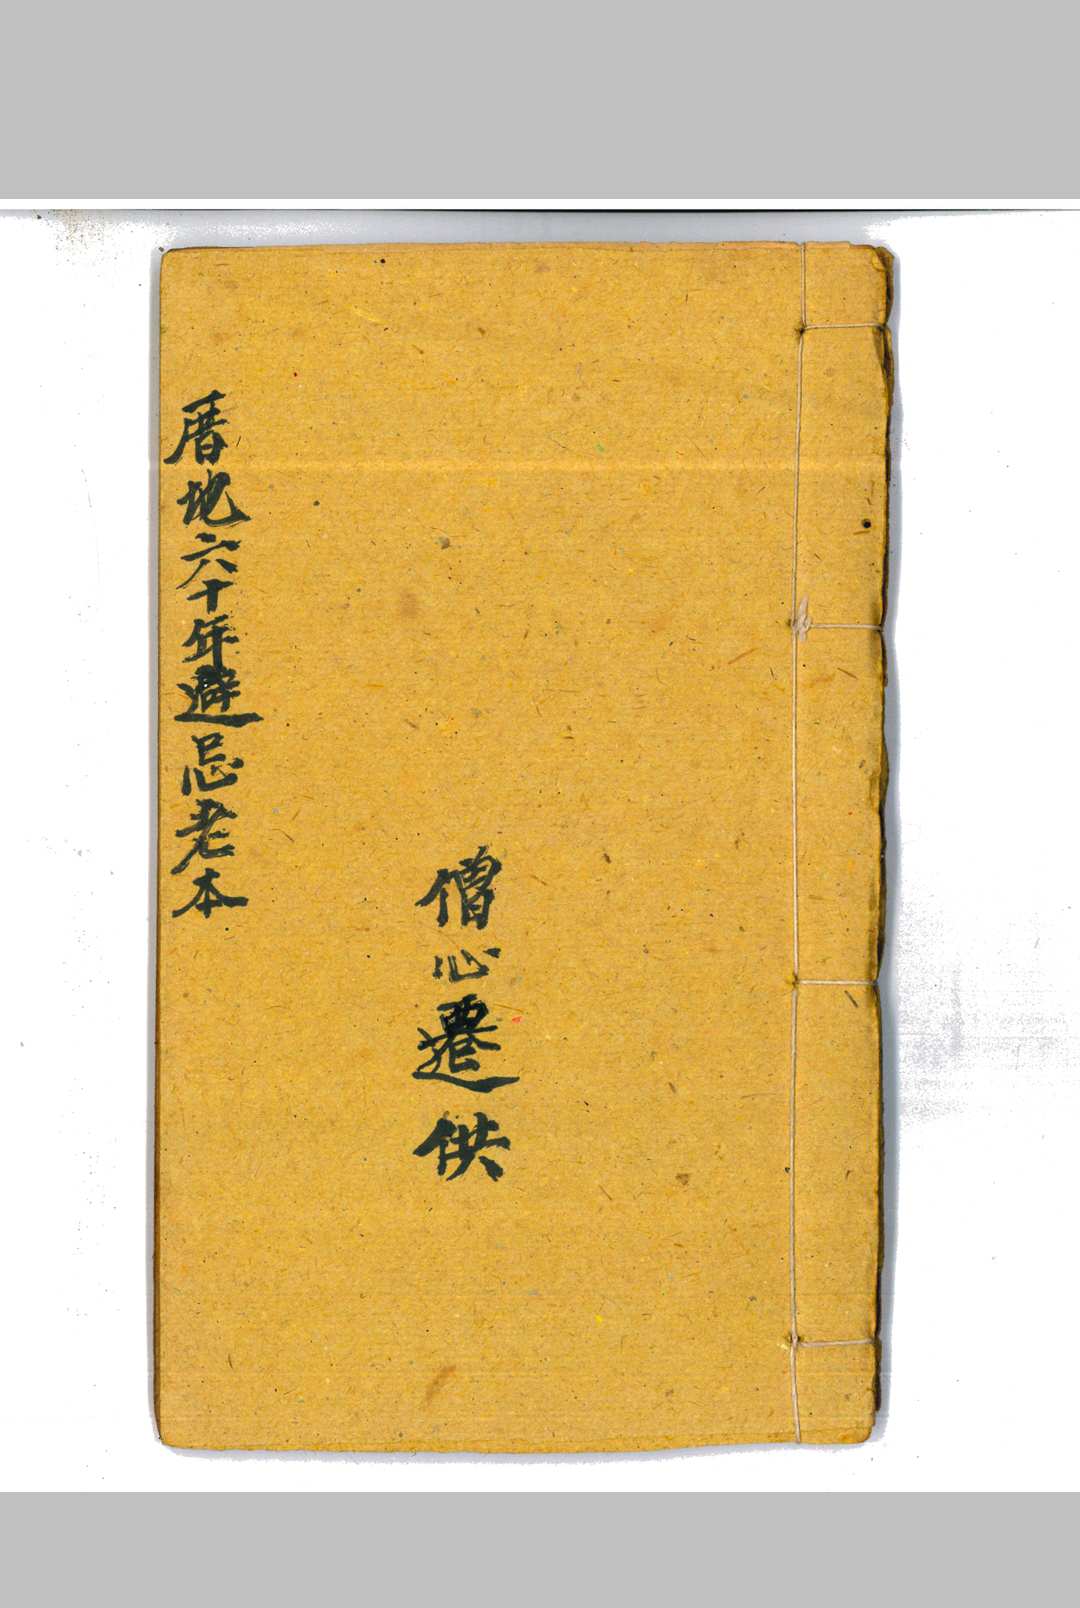 僧心遷供
厝地六十年避忌老本